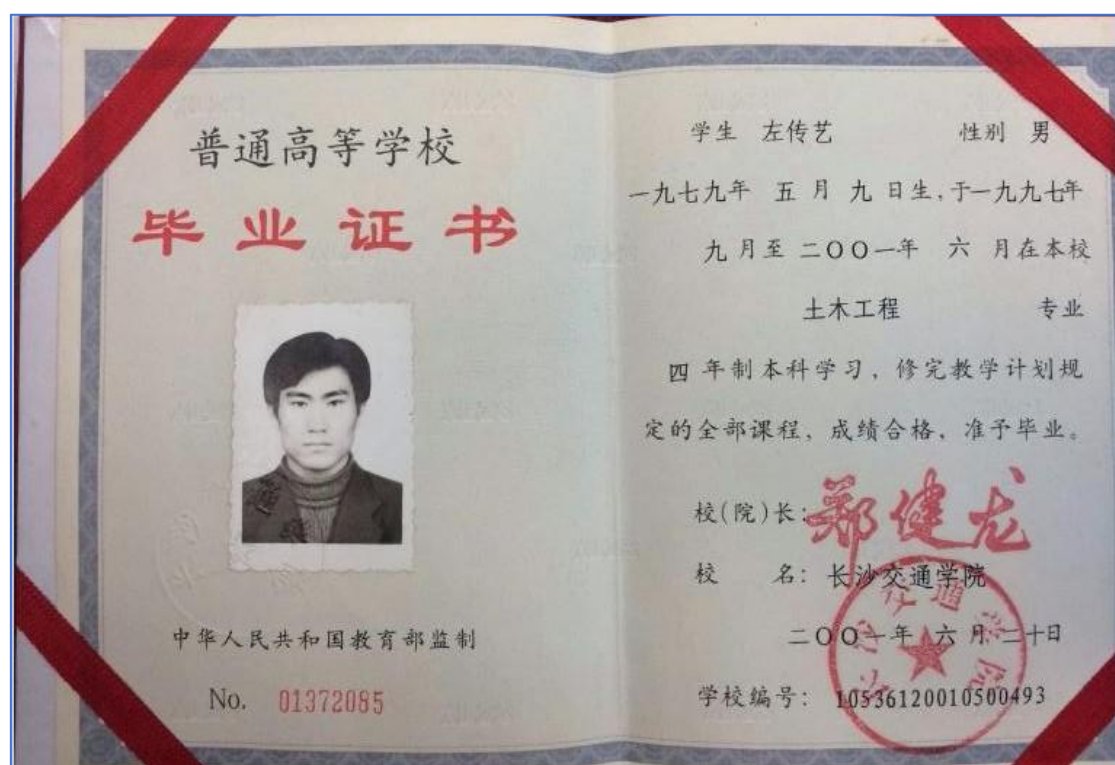 普通高等学校
毕业证书
中华人民共和国教育部监制
No. 01372085
学生 左传艺 性别 男
一九七九年 五 月 九 日生,于一九九七年
九 月至 二〇〇一年 六 月在本校
土木工程 专业
四 年制本科学习，修完教学计划规
定的全部课程，成绩合格，准予毕业。
校(院)长: 郑健龙
校 名: 长沙交通学院
二〇〇一年 六 月 二十日
学校编号: 105361200105004​93
长沙交通学院